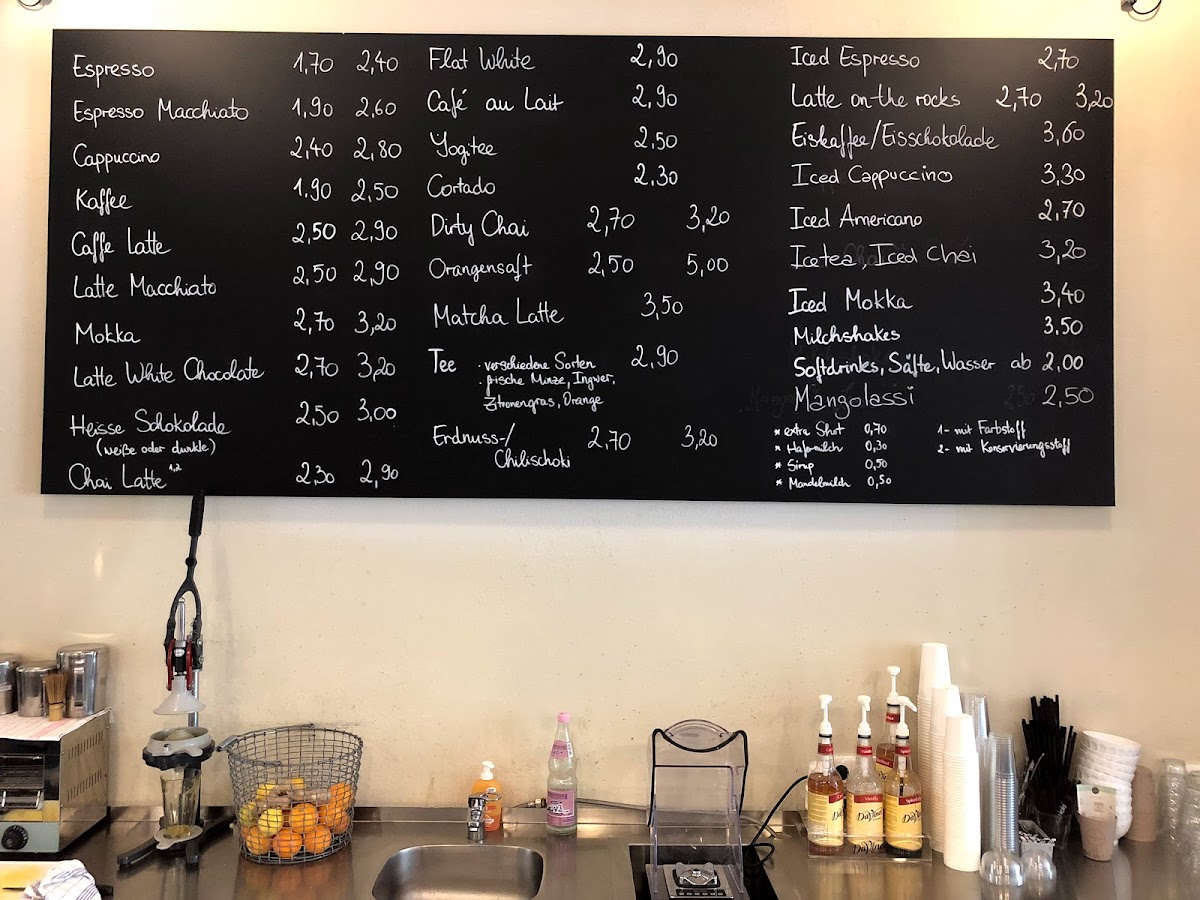 Espresso 1,70 2,40
Espresso Macchiato 1,90 2,60
Cappuccino 2,40 2,80
Kaffee 1,90 2,50
Caffe Latte 2,50 2,90
Latte Macchiato 2,50 2,90
Mokka 2,70 3,20
Latte White Chocolate 2,70 3,20
Heisse Schokolade 2,50 3,00
(weiße oder dunkle)
Chai Latte 1,2 2,30 2,90
Flat White 2,90
Café au Lait 2,90
Yogitee 2,50
Cortado 2,30
Dirty Chai 2,70 3,20
Orangensaft 2,50 5,00
Matcha Latte 3,50
Tee · verschiedene Sorten 2,90
· frische Minze, Ingwer,
Zitronengras, Orange
Erdnuss-/ 2,70 3,20
Chilischoki
Iced Espresso 2,70
Latte on-the rocks 2,70 3,20
Eiskaffee/Eisschokolade 3,60
Iced Cappuccino 3,30
Iced Americano 2,70
Icetea, Iced Chai 3,20
Iced Mokka 3,40
Milchshakes 3.50
Softdrinks, Säfte, Wasser ab 2,00
Mangolassi 2,50
* extra Shot 0,70
* Hafermilch 0,30
* Sirup 0,50
* Mandelmilch 0,50
1- mit Farbstoff
2- mit Konservierungsstoff
DaVinci